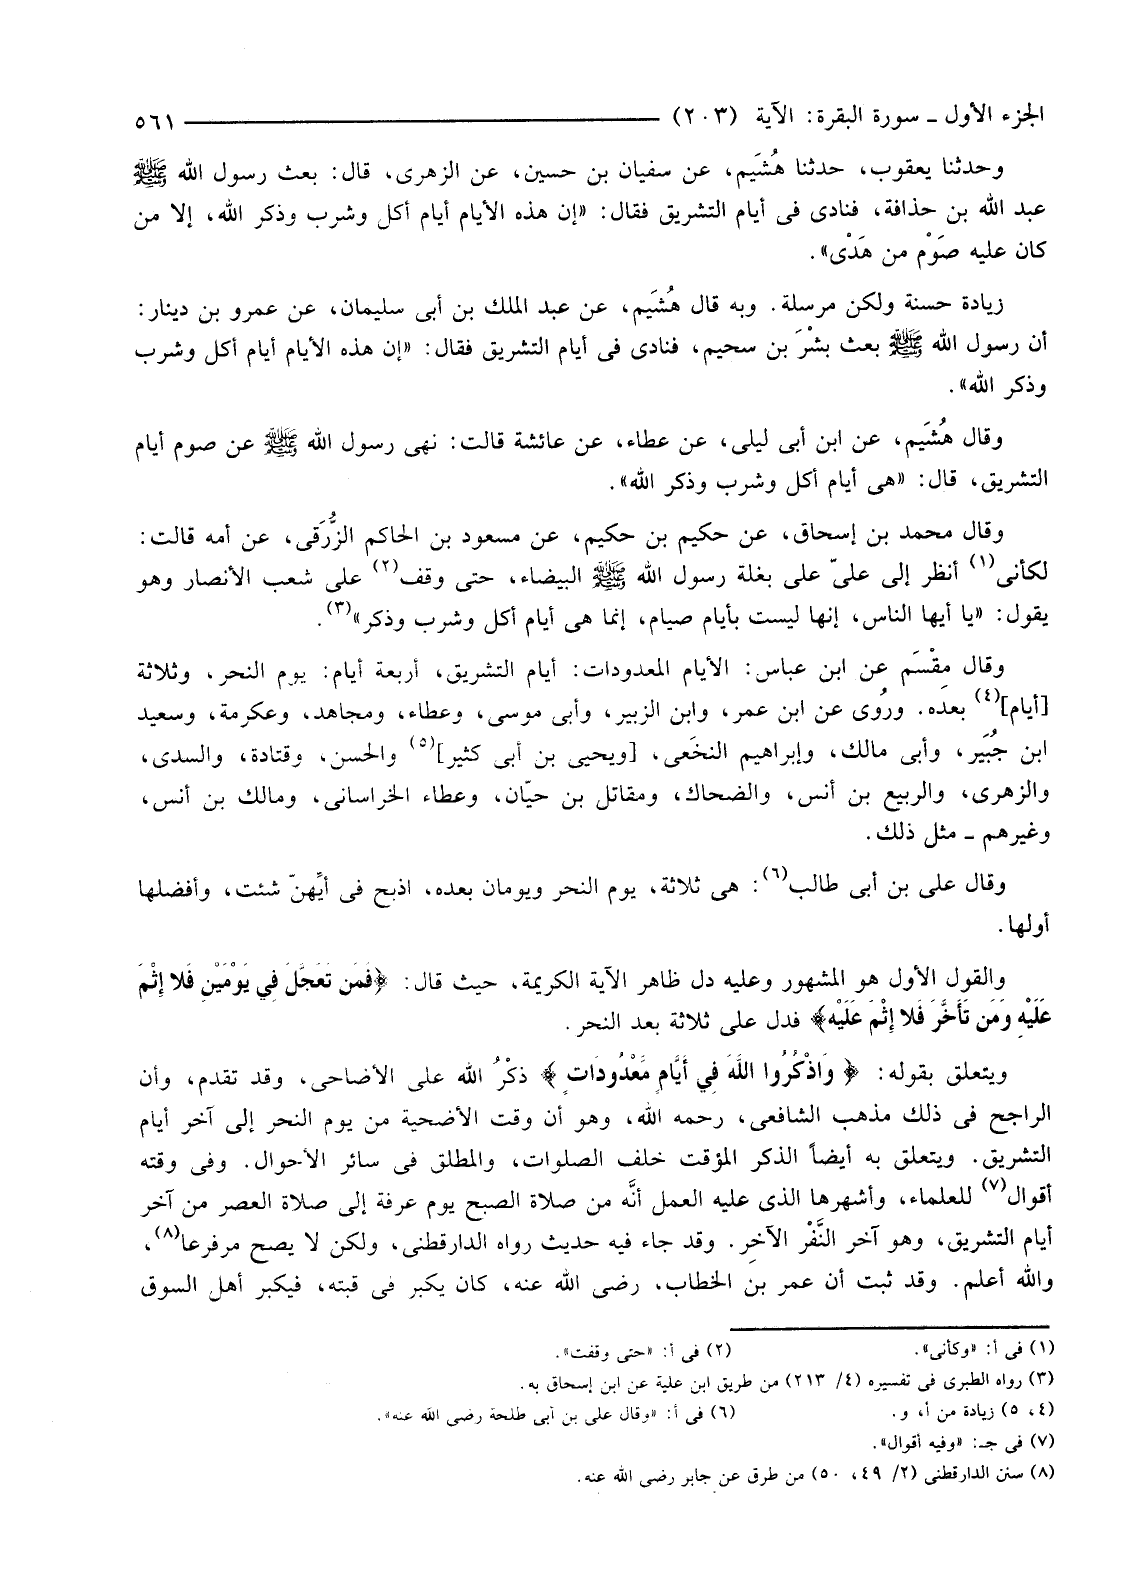 الجزء الأول ـ سورة البقرة: الآية (٢٠٣) ٥٦١
وحدثنا يعقوب، حدثنا هُشَيم، عن سفيان بن حسين، عن الزهرى، قال: بعث رسول الله ﷺ
عبد الله بن حذافة، فنادى فى أيام التشريق فقال: «إن هذه الأيام أيام أكل وشرب وذكر الله، إلا من
كان عليه صَوْم من هَدْى».
زيادة حسنة ولكن مرسلة. وبه قال هُشَيم، عن عبد الملك بن أبى سليمان، عن عمرو بن دينار:
أن رسول الله ﷺ بعث بشْرَ بن سحيم، فنادى فى أيام التشريق فقال: «إن هذه الأيام أيام أكل وشرب
وذكر الله».
وقال هُشَيم، عن ابن أبى ليلى، عن عطاء، عن عائشة قالت: نهى رسول الله ﷺ عن صوم أيام
التشريق، قال: «هى أيام أكل وشرب وذكر الله».
وقال محمد بن إسحاق، عن حكيم بن حكيم، عن مسعود بن الحاكم الزُّرَقى، عن أمه قالت:
لكأنى(١) أنظر إلى علىّ على بغلة رسول الله ﷺ البيضاء، حتى وقف(٢) على شعب الأنصار وهو
يقول: «يا أيها الناس، إنها ليست بأيام صيام، إنما هى أيام أكل وشرب وذكر»(٣).
وقال مِقْسَم عن ابن عباس: الأيام المعدودات: أيام التشريق، أربعة أيام: يوم النحر، وثلاثة
[أيام](٤) بعده. ورُوى عن ابن عمر، وابن الزبير، وأبى موسى، وعطاء، ومجاهد، وعكرمة، وسعيد
ابن جُبَير، وأبى مالك، وإبراهيم النخَعى، [ويحيى بن أبى كثير](٥) والحسن، وقتادة، والسدى،
والزهرى، والربيع بن أنس، والضحاك، ومقاتل بن حيّان، وعطاء الخراسانى، ومالك بن أنس،
وغيرهم ـ مثل ذلك.
وقال على بن أبى طالب(٦): هى ثلاثة، يوم النحر ويومان بعده، اذبح فى أيِّهنّ شئت، وأفضلها
أولها.
والقول الأول هو المشهور وعليه دل ظاهر الآية الكريمة، حيث قال: ﴿فَمَن تَعَجَّلَ فِي يَوْمَيْنِ فَلا إِثْمَ
عَلَيْهِ وَمَن تَأَخَّرَ فَلا إِثْمَ عَلَيْهِ﴾ فدل على ثلاثة بعد النحر.
ويتعلق بقوله: ﴿ وَاذْكُرُوا اللَّهَ فِي أَيَّامٍ مَّعْدُودَاتٍ ﴾ ذكْرُ الله على الأضاحى، وقد تقدم، وأن
الراجح فى ذلك مذهب الشافعى، رحمه الله، وهو أن وقت الأضحية من يوم النحر إلى آخر أيام
التشريق. ويتعلق به أيضاً الذكر المؤقت خلف الصلوات، والمطلق فى سائر الأحوال. وفى وقته
أقوال(٧) للعلماء، وأشهرها الذى عليه العمل أنَّه من صلاة الصبح يوم عرفة إلى صلاة العصر من آخر
أيام التشريق، وهو آخر النَّفْر الآخِر. وقد جاء فيه حديث رواه الدارقطنى، ولكن لا يصح مرفرعا(٨)،
والله أعلم. وقد ثبت أن عمر بن الخطاب، رضى الله عنه، كان يكبر فى قبته، فيكبر أهل السوق
(١) فى أ: «وكأنى». (٢) فى أ: «حتى وقفت».
(٣) رواه الطبرى فى تفسيره (٤/ ٢١٣) من طريق ابن علية عن ابن إسحاق به.
(٤، ٥) زيادة من أ، و. (٦) فى أ: «وقال على بن أبى طلحة رضى الله عنه».
(٧) فى جـ: «وفيه أقوال».
(٨) سنن الدارقطنى (٢/ ٤٩، ٥٠) من طرق عن جابر رضى الله عنه.